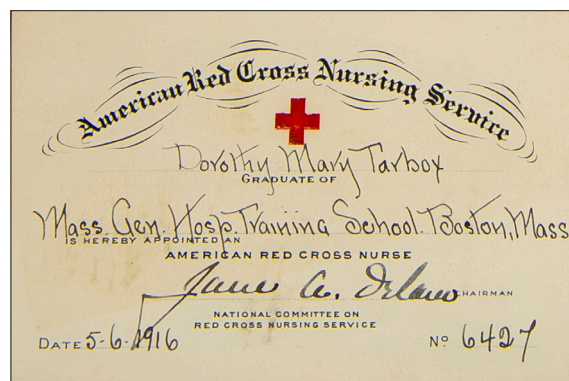 American Red Cross Nursing Service
Dorothy Mary Tarbox
GRADUATE OF
Mass. Gen. Hosp. Training School. Boston, Mass
IS HEREBY APPOINTED AN
AMERICAN RED CROSS NURSE
Jane A. Delano CHAIRMAN
NATIONAL COMMITTEE ON
RED CROSS NURSING SERVICE
DATE 5-6-1916 No 6427